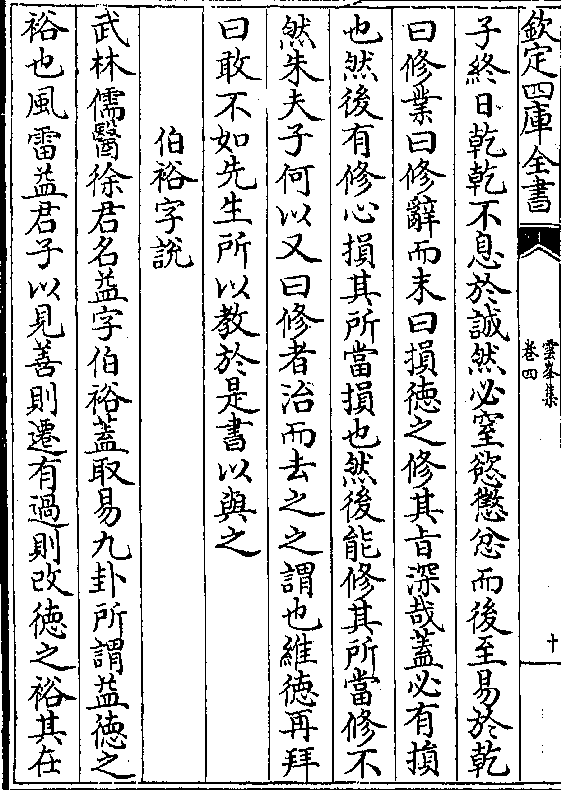 欽定四庫全書
雲峯集
卷四
十
子終日乾乾不息於誠然必窒慾懲忿而後至易於乾
曰修業曰修辭而末曰損徳之修其旨深哉蓋必有損
也然後有修心損其所當損也然後能修其所當修不
然朱夫子何以又曰修者治而去之之謂也維徳再拜
曰敢不如先生所以教於是書以與之
伯裕字説
武林儒醫徐君名益字伯裕蓋取易九卦所謂益徳之
裕也風雷益君子以見善則遷有過則改徳之裕其在